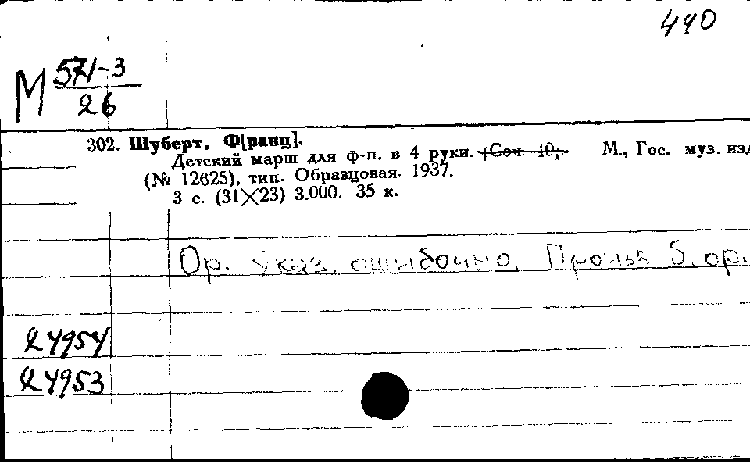 440
М 571-3
26
302. Шуберт, Ф[ранц].
Детский марш для ф-п. в 4 руки. (Соч. 40, М., Гос. муз. изд
(№ 12625), тип. Образцовая. 1937.
3 с. (31×23) 3.000. 35 к.
Ор. указ. ошибочно. Б. ор.
24954
24953